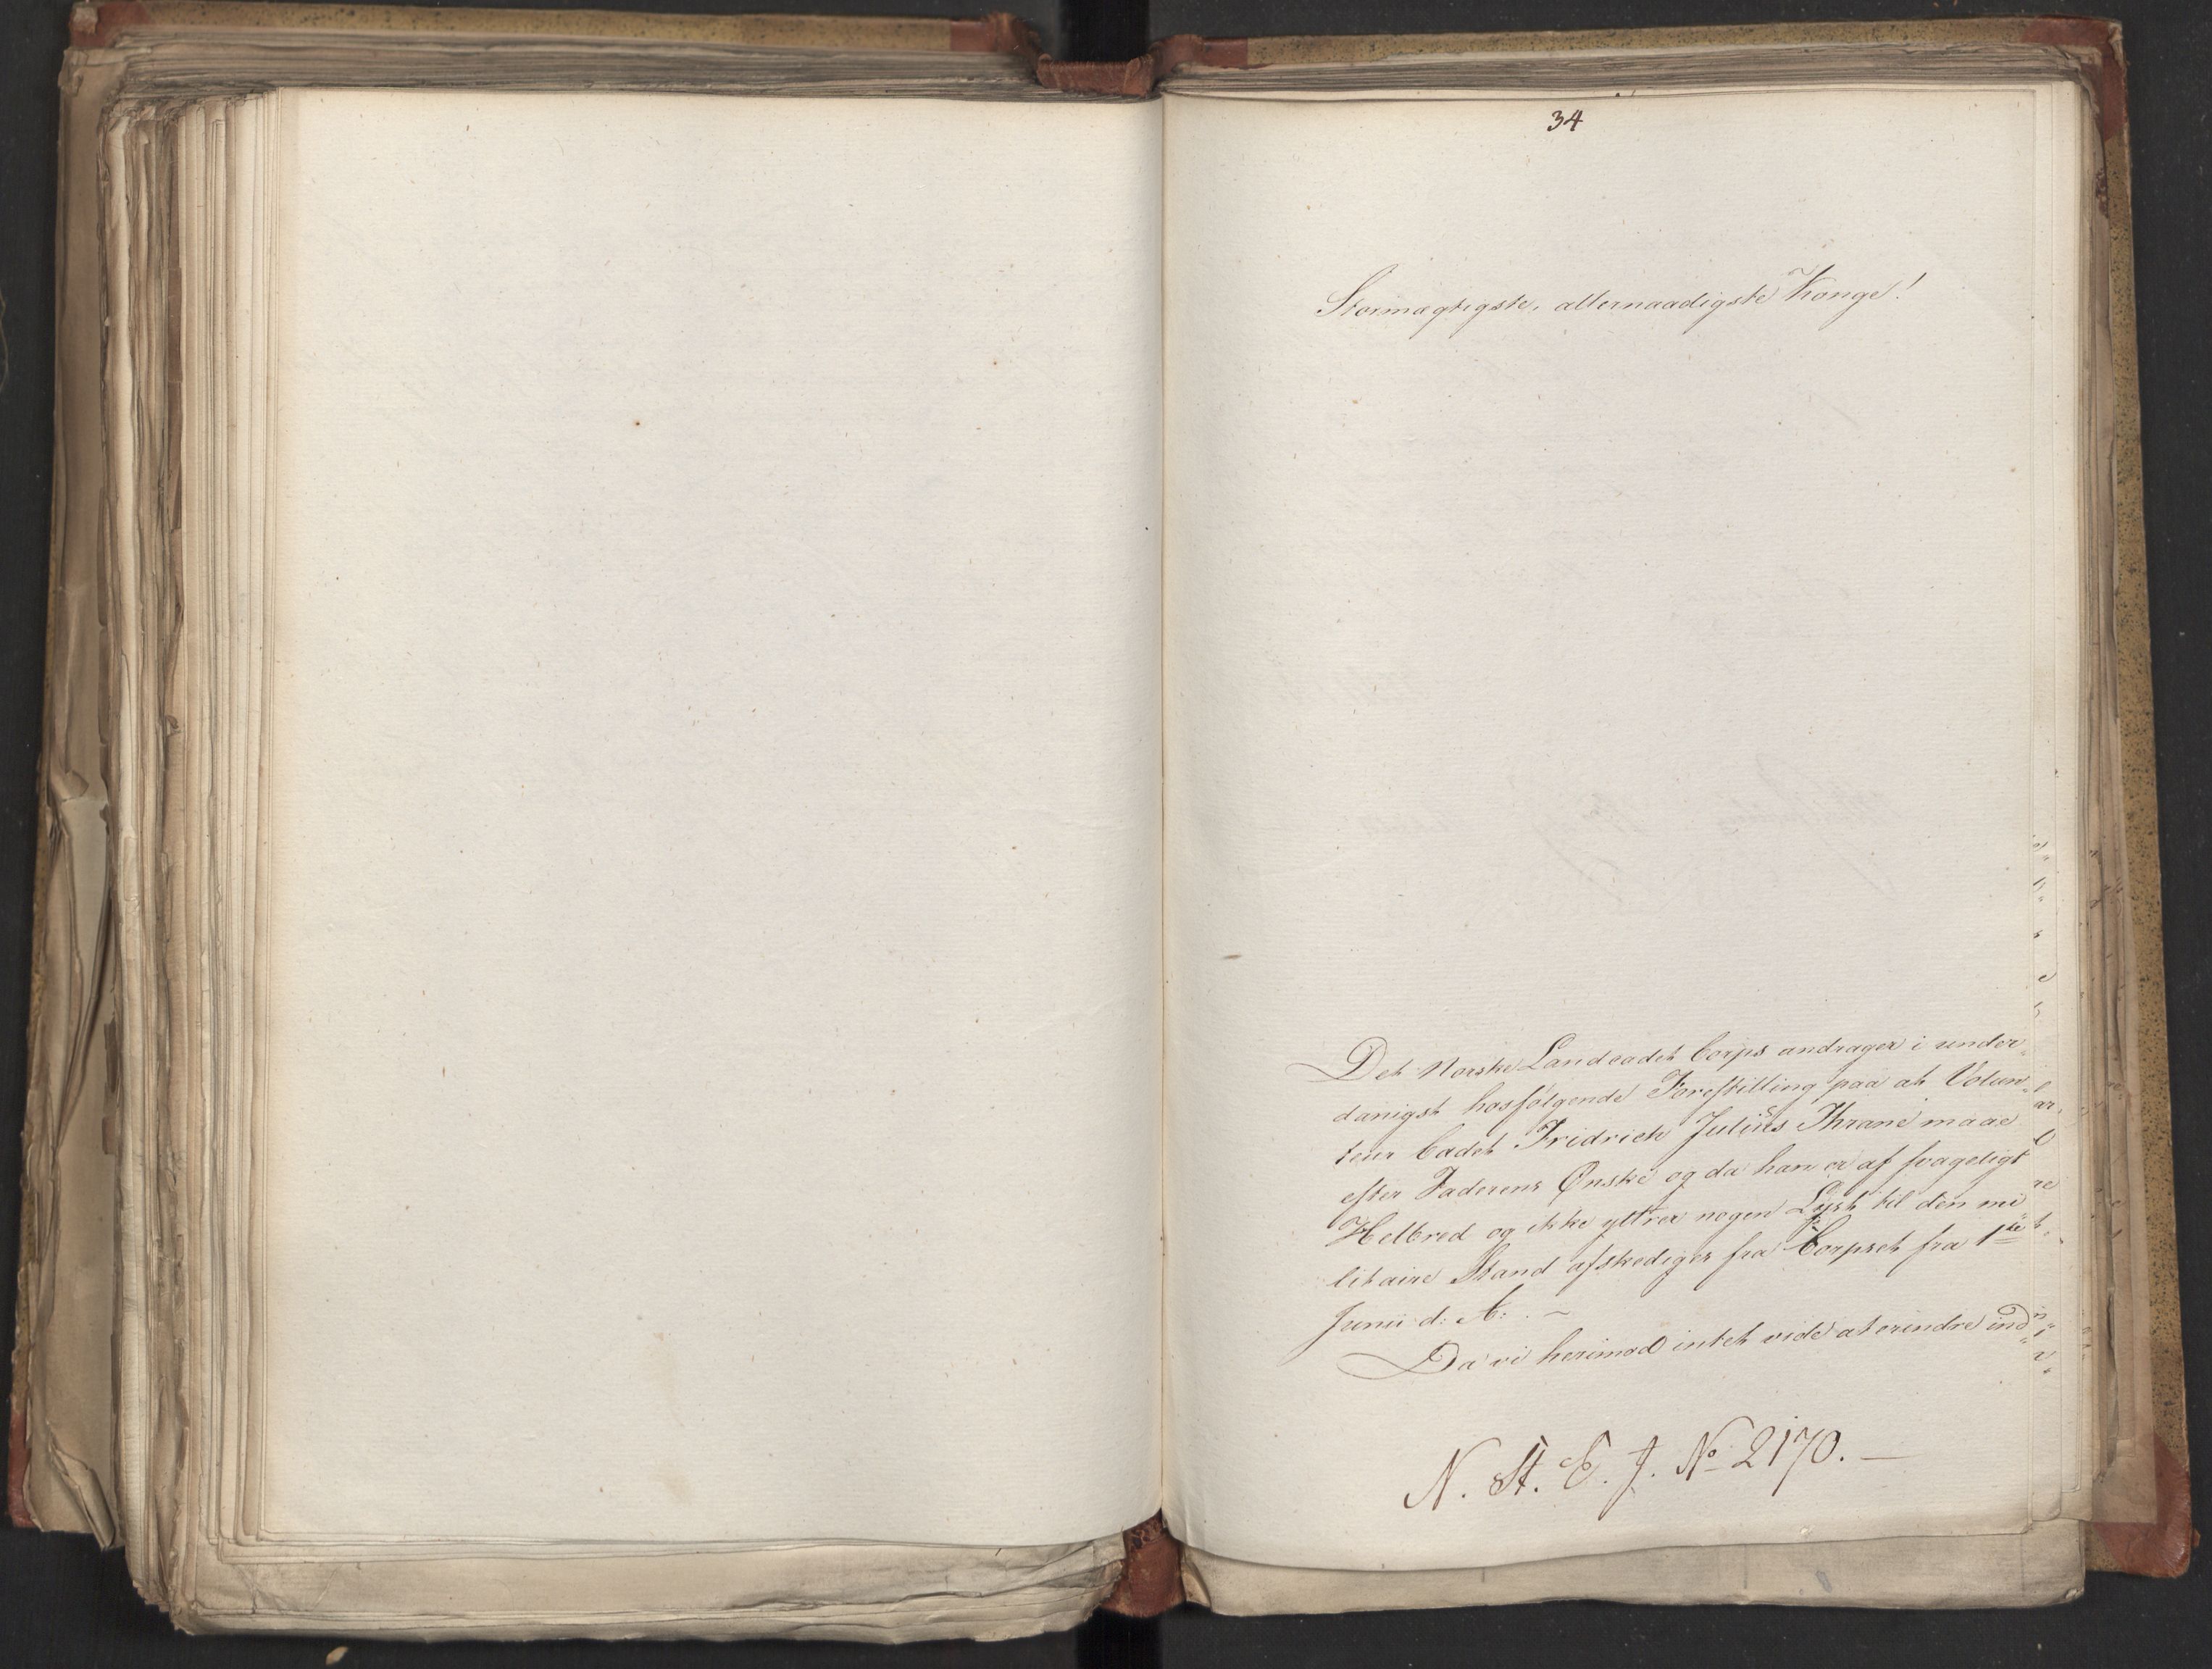 34
Stormægtigste, allernaadigste Konge!
Det Norske Landcadet Corps andrager i under„
danigst hosfølgende Forestilling paa at Volun„
teur Cadet Fridrich Julius Thrane maae
efter Faderens Ønske og da han er af svageligt
Helbred og ikke yttrer nogen Lyst til den mi„
litaire Stand afskediges fra Corpset fra 1ste
Junii d: A:. ~
Da vi herimod intet vide at erindre ind„
N. St. E. J. No 2170. —